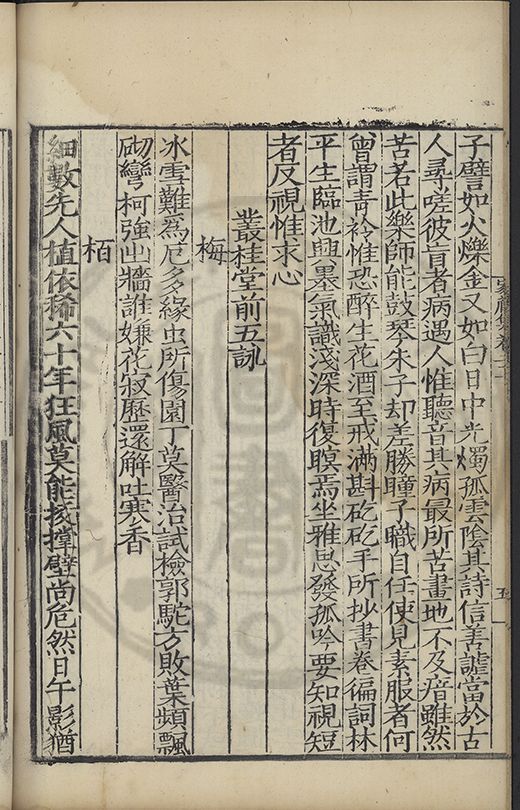 子譬如火爍金又如白日中光燭孤雲陰其詩信善謔當於古
人尋嗟彼盲者病遇人惟聽音其病最所苦畫地不及瘖雖然
苦若此樂師能鼓琴朱子却差勝瞳子職自任使見素服者何
曾謂青衿惟恐醉生花酒至戒滿斟矻矻手所抄書卷徧詞林
平生臨池興墨氣識淺深時復瞑焉坐雅思發孤吟要知視短
者反視惟求心
叢桂堂前五詠
梅
冰雪難爲厄多緣虫所傷園丁莫醫治試檢郭駝方敗葉頻飄
砌彎柯強出牆誰嫌花寂歷還解吐寒香
栢
細數先人植依稀六十年狂風莫能拔撐壁尚危然日午影猶